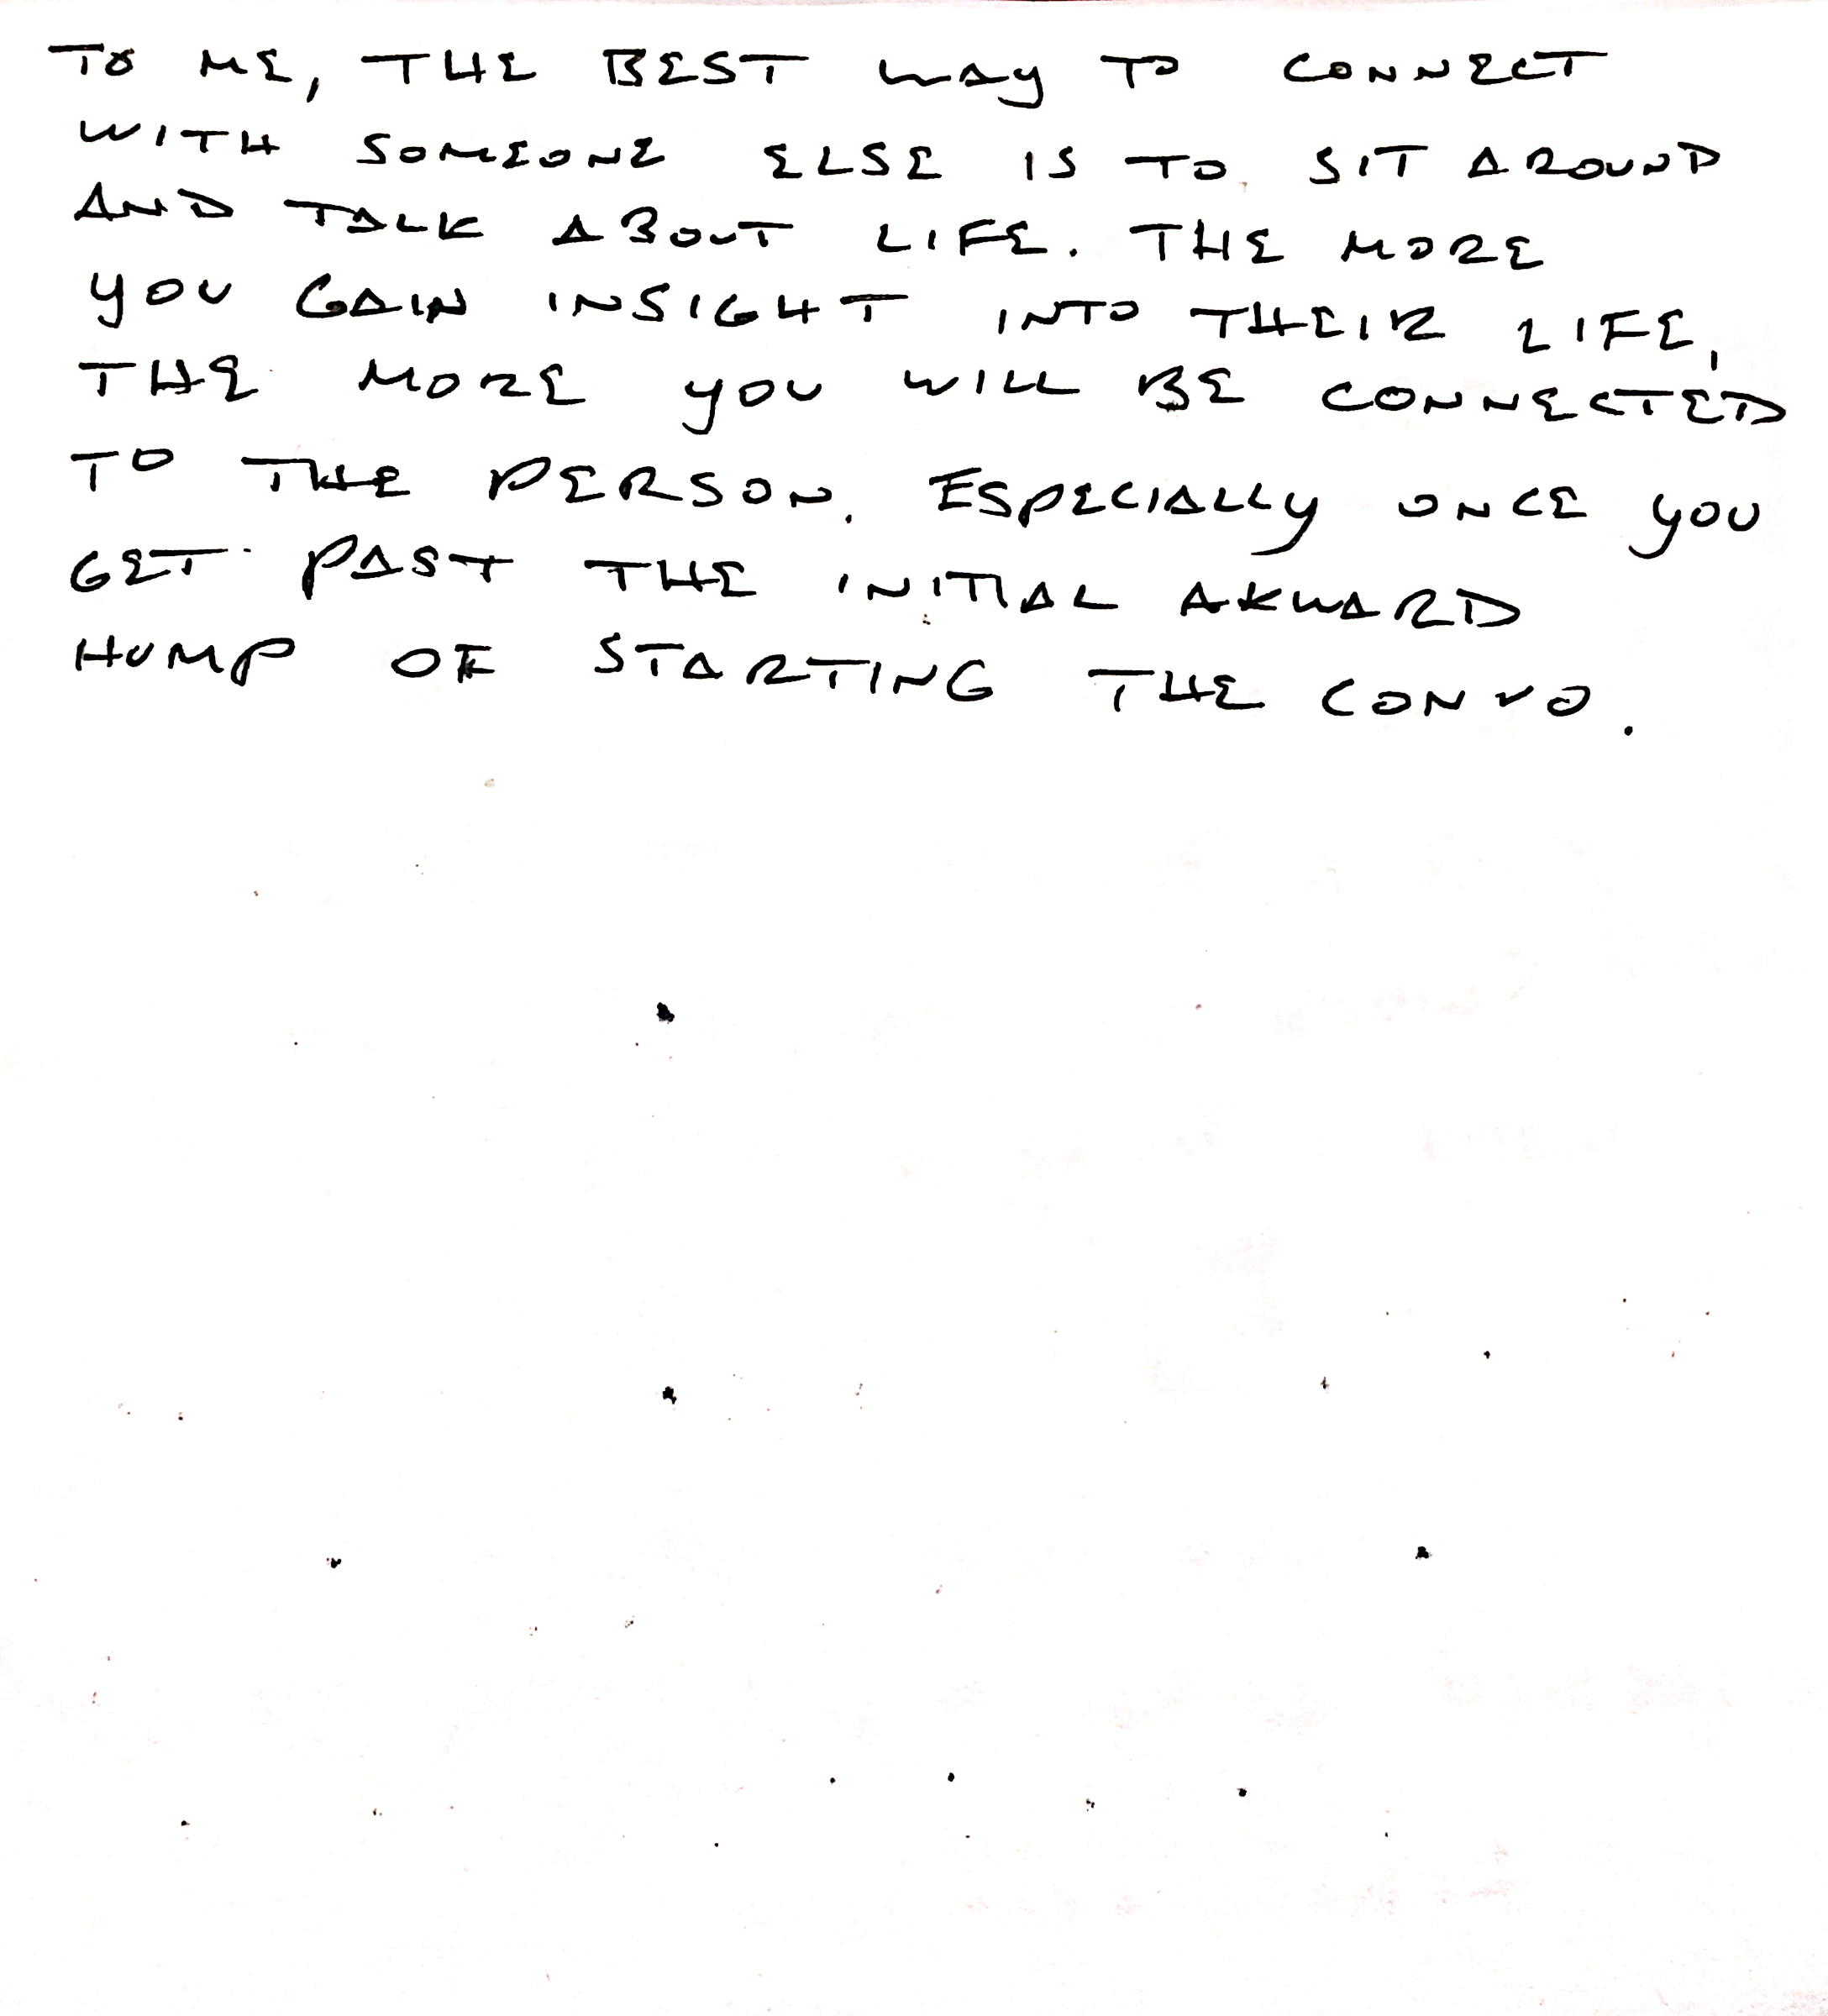 TO ME, THE BEST WAY TO CONNECT
WITH SOMEONE ELSE IS TO SIT AROUND
AND TALK ABOUT LIFE. THE MORE
YOU GAIN INSIGHT INTO THEIR LIFE,
THE MORE YOU WILL BE CONNECTED
TO THE PERSON. ESPECIALLY ONCE YOU
GET PAST THE INITIAL AKWARD
HUMP OF STARTING THE CONVO.